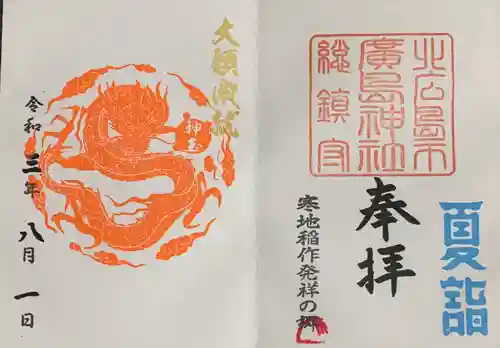 北広島市
廣島神社
総鎮守
夏詣
奉拝
寒地稲作発祥の郷
大願成就
神玉
令和三年八月一日